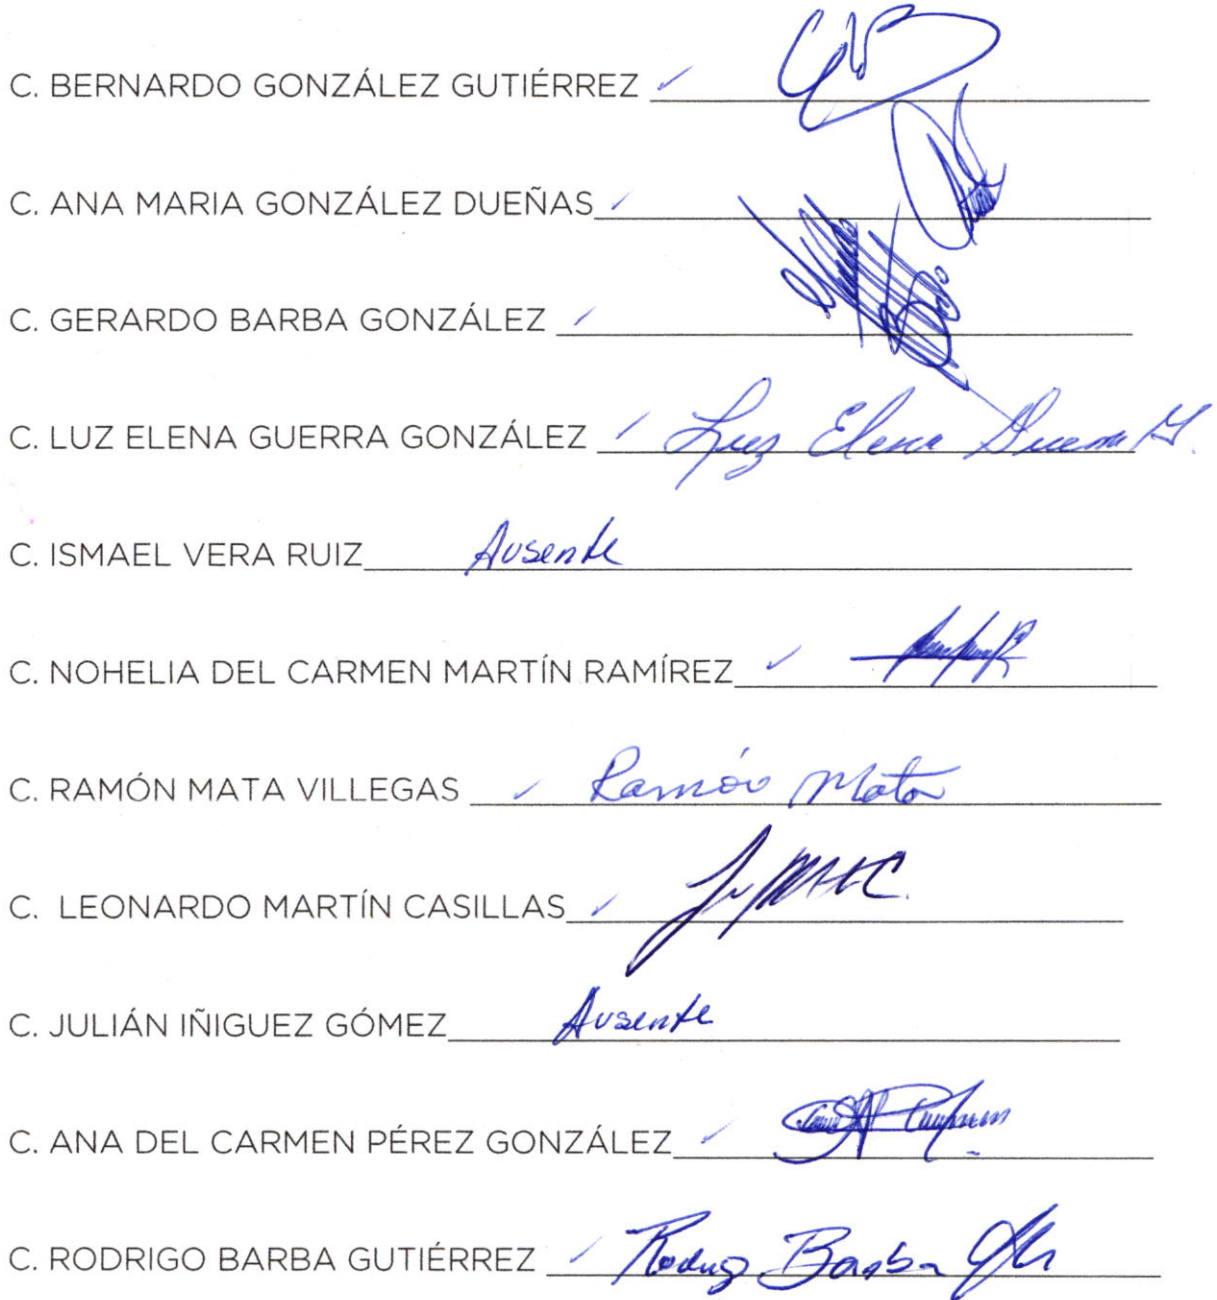 C. BERNARDO GONZÁLEZ GUTIÉRREZ
C. ANA MARIA GONZÁLEZ DUEÑAS
C. GERARDO BARBA GONZÁLEZ
C. LUZ ELENA GUERRA GONZÁLEZ Luz Elena
C. ISMAEL VERA RUIZ Ausente
C. NOHELIA DEL CARMEN MARTÍN RAMÍREZ
C. RAMÓN MATA VILLEGAS Ramón Mata
C. LEONARDO MARTÍN CASILLAS
C. JULIÁN IÑIGUEZ GÓMEZ Ausente
C. ANA DEL CARMEN PÉREZ GONZÁLEZ
C. RODRIGO BARBA GUTIÉRREZ Barba